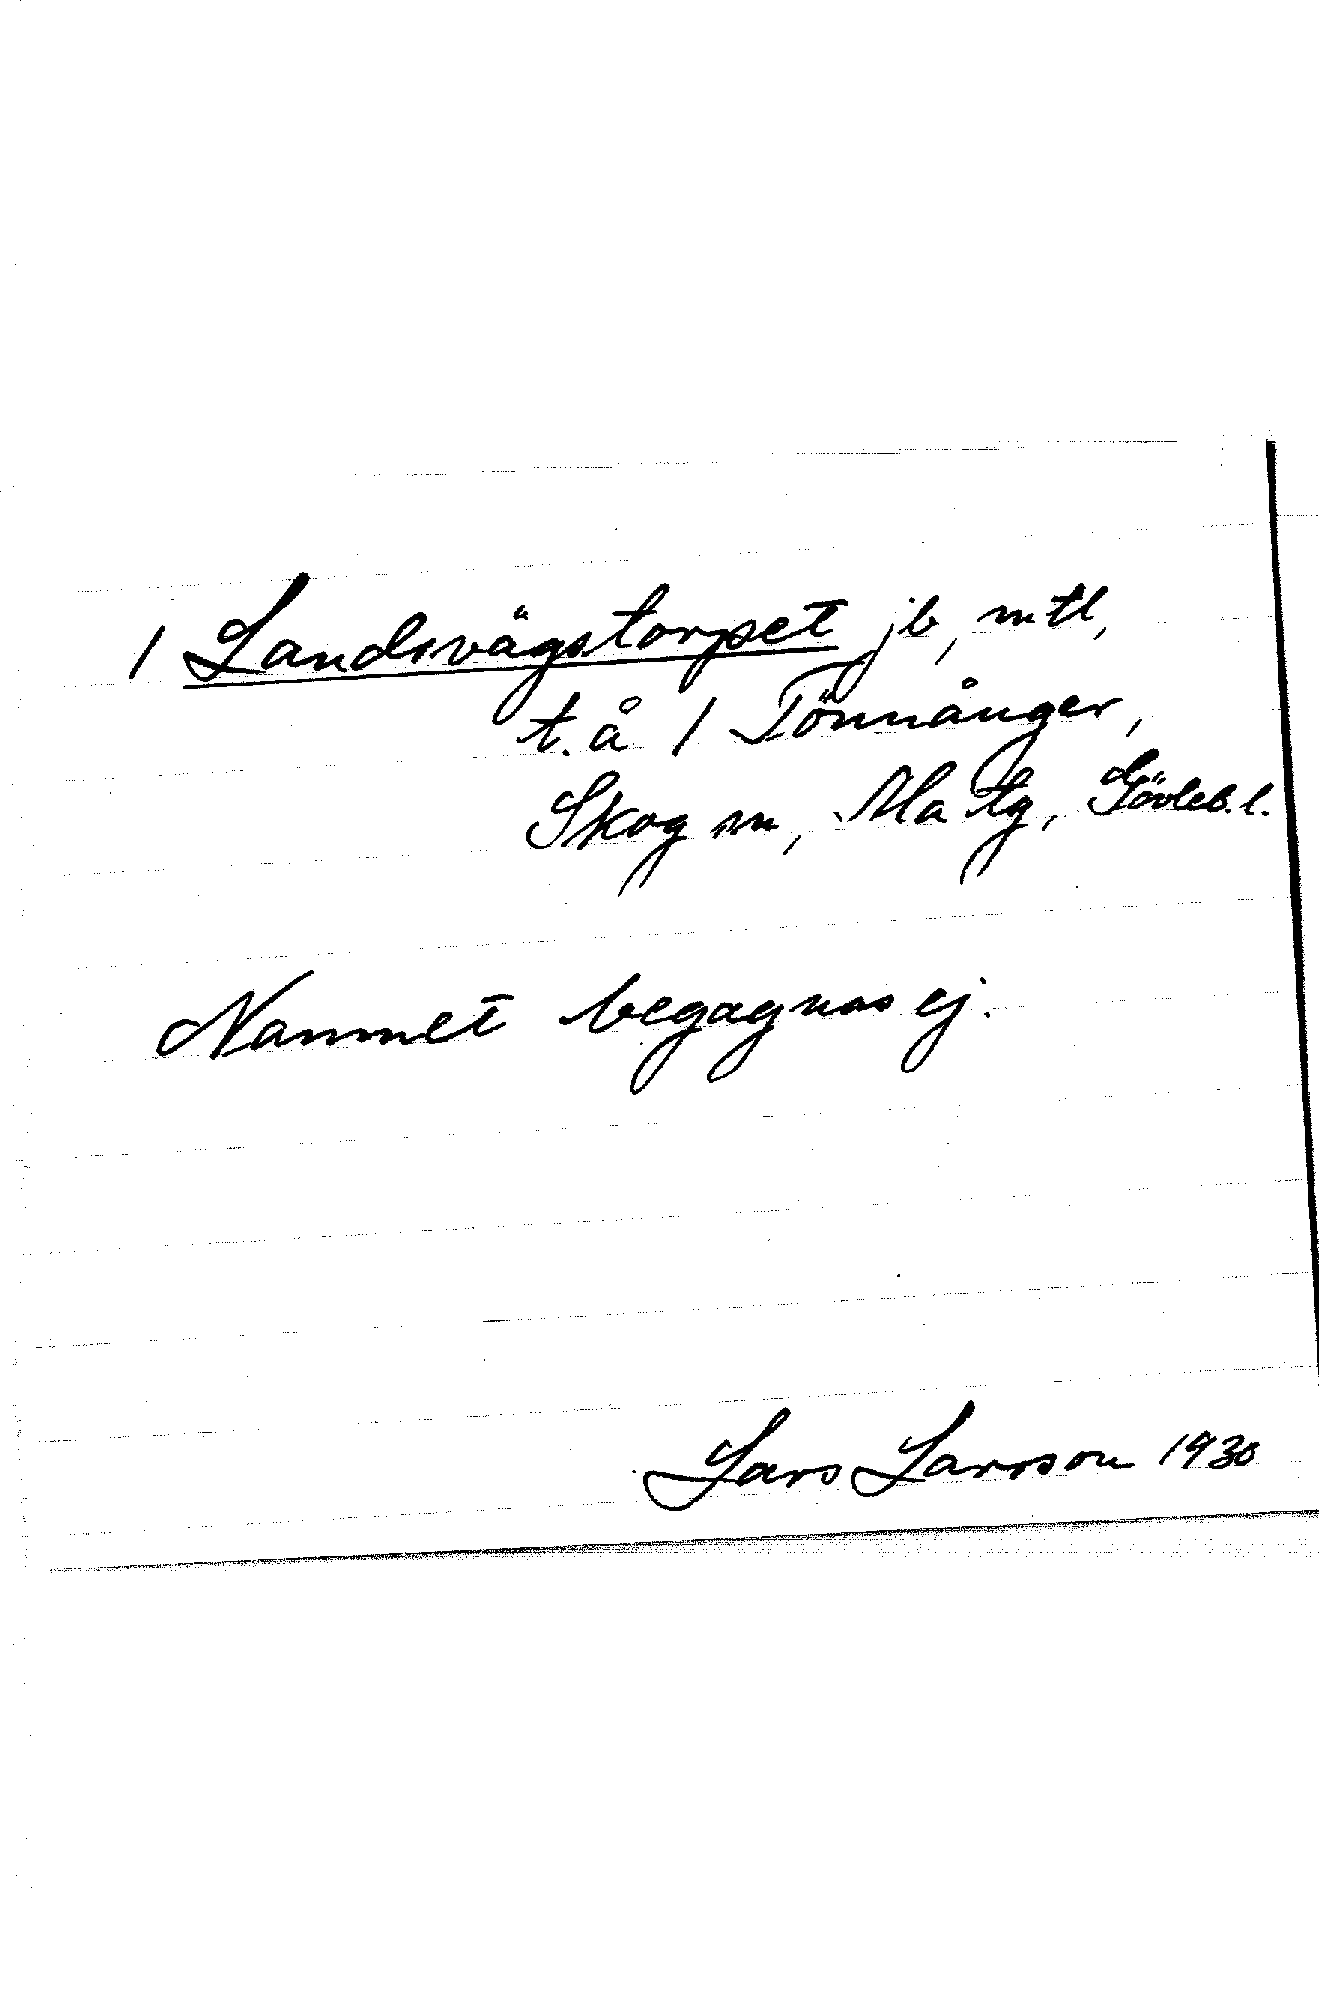 1 Landsvägstorpet jb, mtl,
t. å 1 Tönnånger,
Skog sn, Ala tg, Gävleb. l.
Namnet begagnas ej.
Lars Larsson 1930